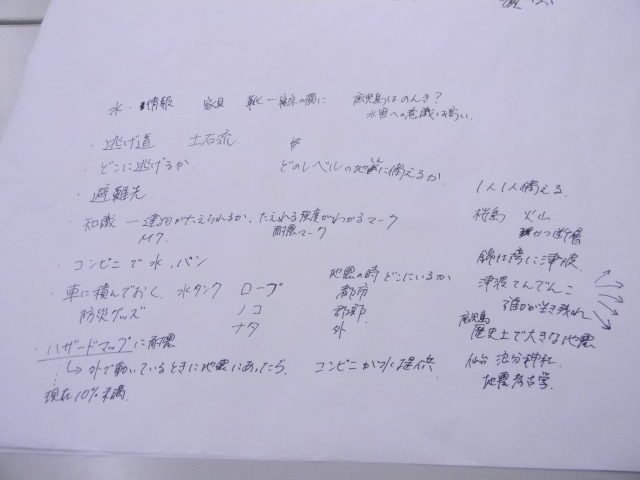 水・情報　家具　靴一寝床の横に　鹿児島はのんき？
水害への意識は高い。
・逃げ道　土石流
・どこに逃げるか　どのレベルの地震に備えるか
・避難先
・知識 ー 建物がたえられるか、たえれる強度がわかるマーク
M7　耐震マーク
・コンビニで水、パン
・車に積んでおく、水タンク　ロープ
防災グッズ　ノコ
ナタ
・ハザードマップに耐震
↳ 外で動いているときに地震にあったら
現在10%未満
地震の時どこにいるか
都市
郡部
外
コンビニが水提供
1人1人備える
桜島　火山
かつ断層
錦江湾に津波
津波てんでんこ
誰かが生き残れ
鹿児島
歴史上で大きな地震
仙台 浪分神社
地震考古学